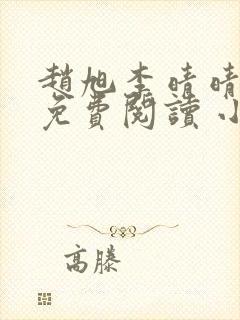 趙旭李晴晴
免費閱讀小
高滕